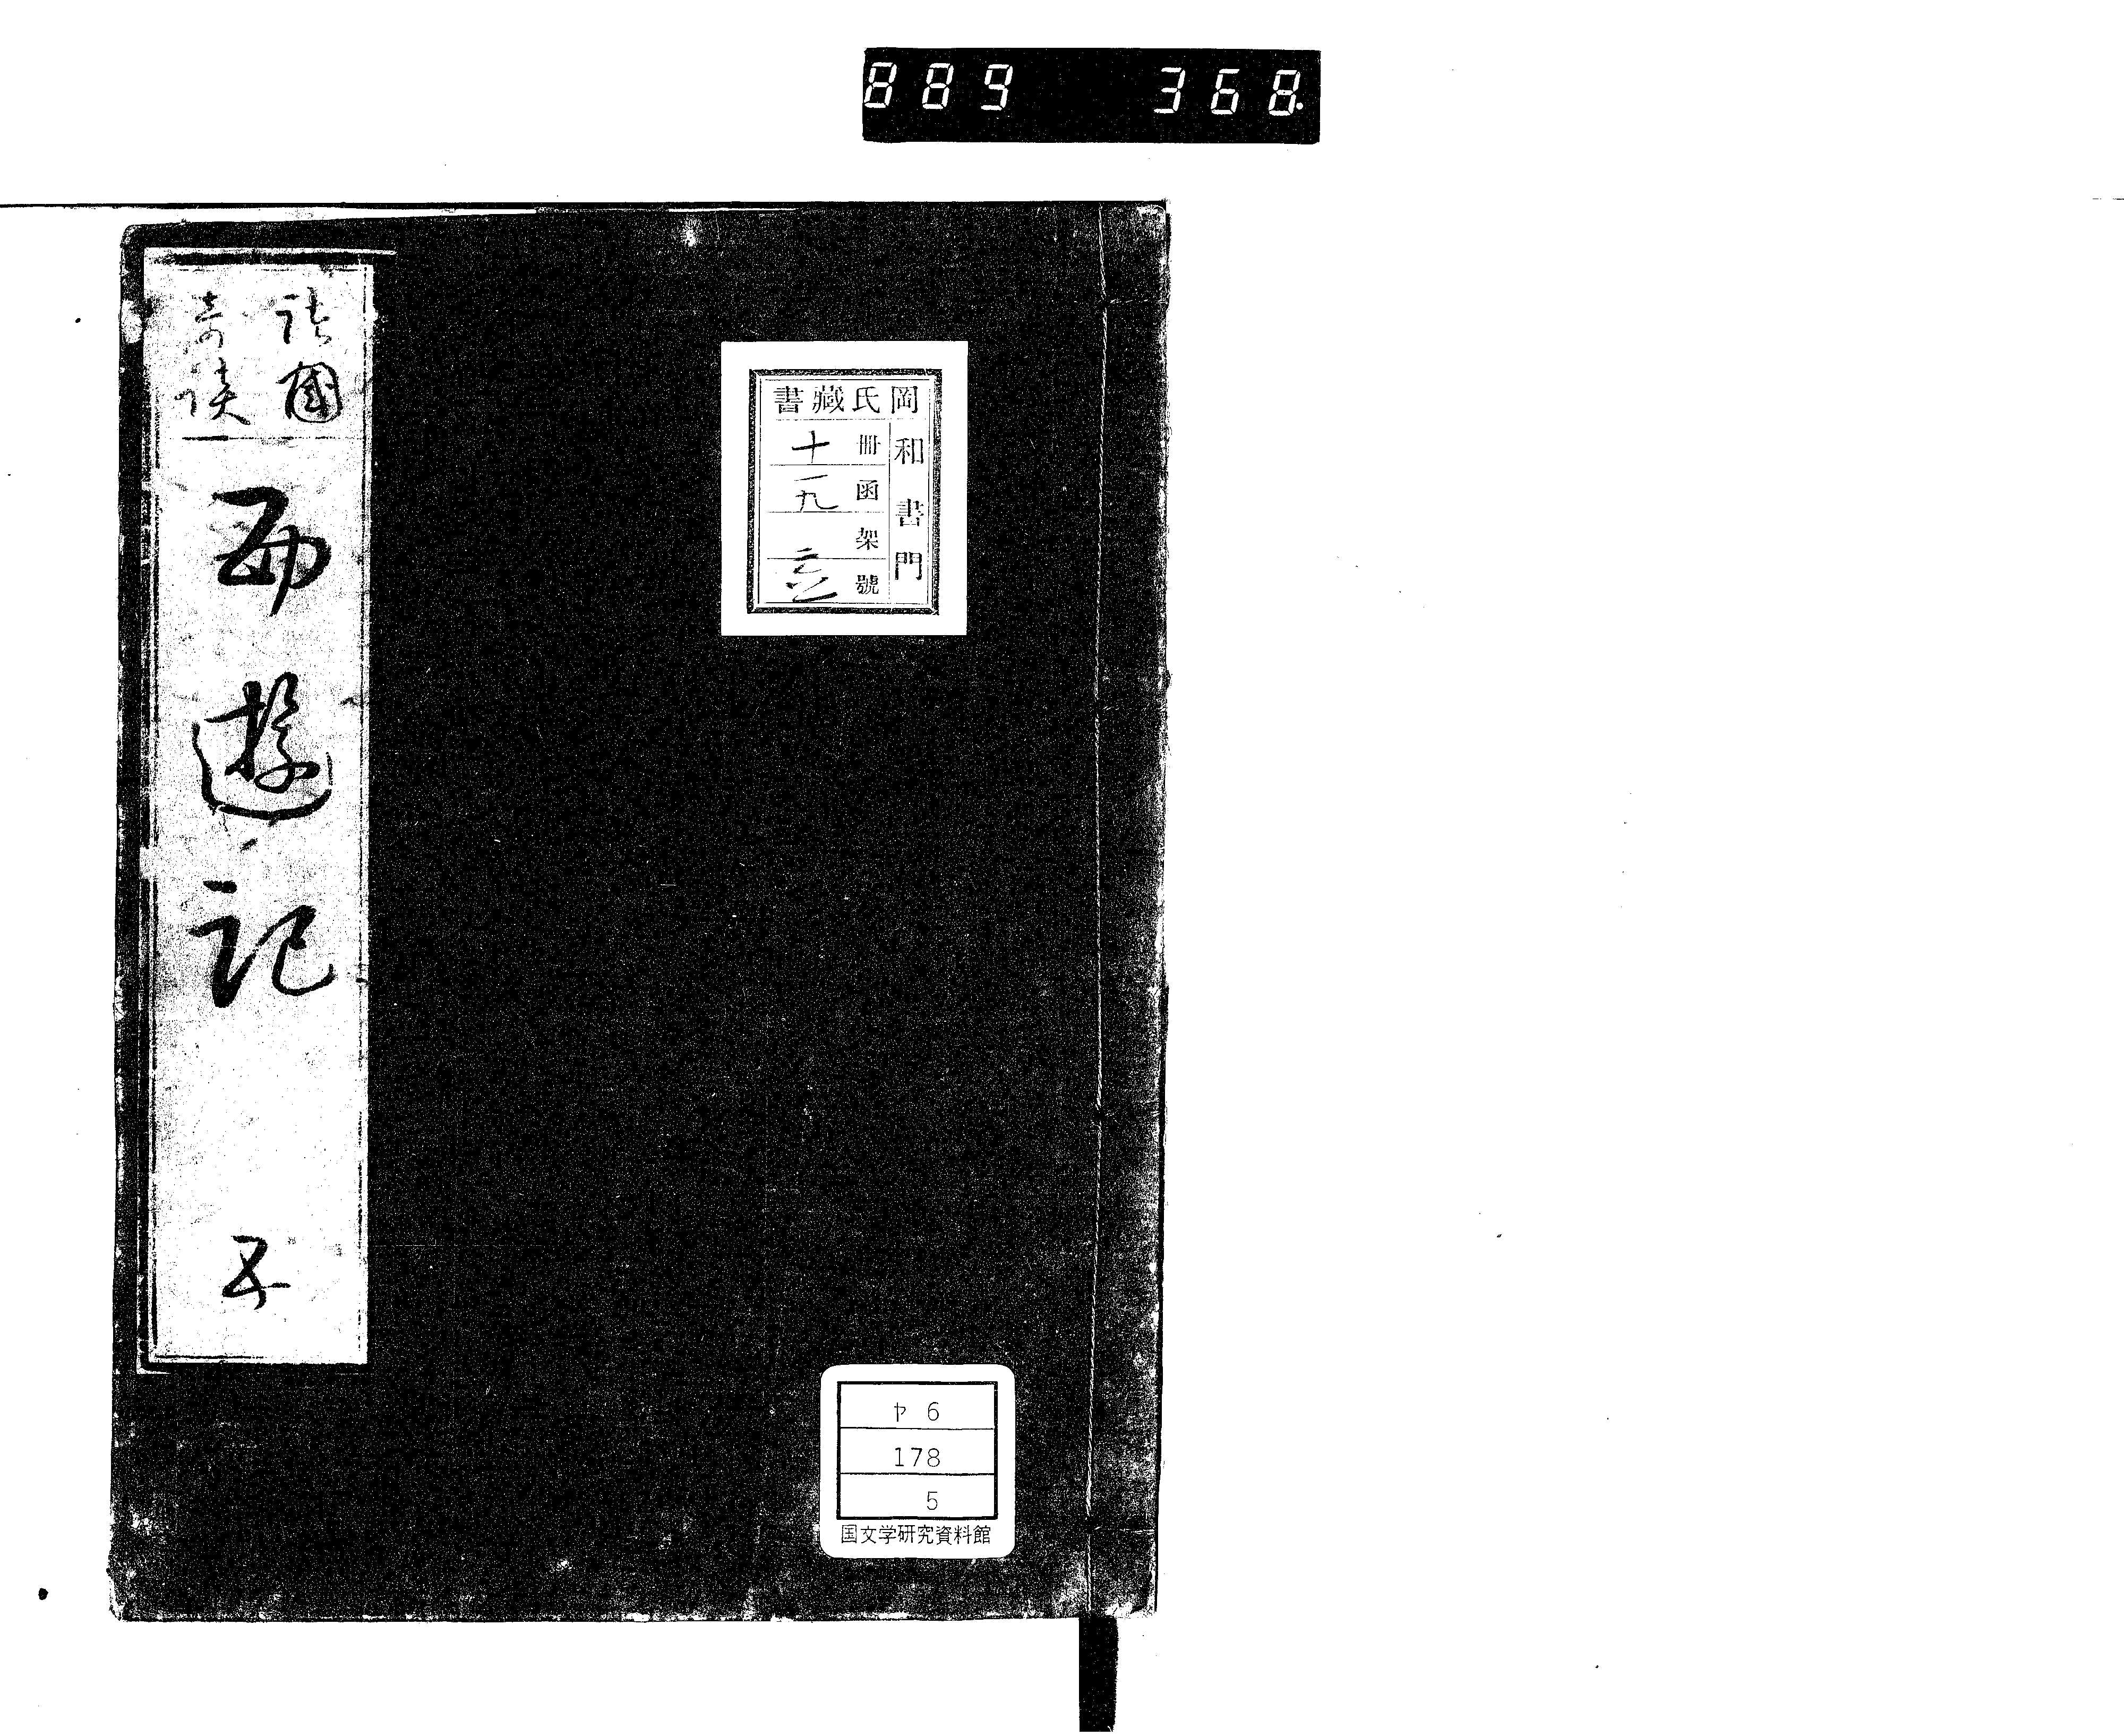 889 368.
諸國
奇談
西遊記
五
岡氏藏書
和書門
冊 十
函 一九
架
號
ヤ 6
178
5
国文学研究資料館